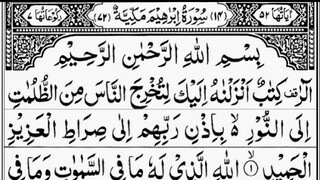 اٰیَاتُهَا ۵۲ (۱۴) سُوْرَةُ اِبْرٰهِيْمَ مَكِّيَّةٌ (۷۲) رُكُوْعَاتُهَا ۷
بِسْمِ اللّٰهِ الرَّحْمٰنِ الرَّحِيْمِ
الٓرٰ قف كِتٰبٌ اَنْزَلْنٰهُ اِلَيْكَ لِتُخْرِجَ النَّاسَ مِنَ الظُّلُمٰتِ
اِلَى النُّوْرِ ۙ۬ بِاِذْنِ رَبِّهِمْ اِلٰى صِرَاطِ الْعَزِيْزِ
الْحَمِيْدِ ۙ‏ ﴿۱﴾ اللّٰهِ الَّذِيْ لَهٗ مَا فِي السَّمٰوٰتِ وَمَا فِي